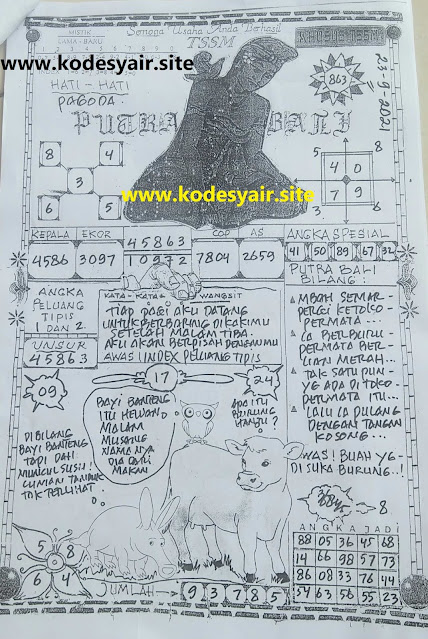 Semoga Usaha Anda Berhasil
TSSM
MISTIK
LAMA - BARU
www.kodesyair.site
HATI - HATI
PAGODA.
863
23-9-2021
PUTRA BALI
8 4
3
6 5
5 8
4 0
7 9
3
www.kodesyair.site
KEPALA EKOR 45863 COP AS ANGKA SPESIAL
4586 3097 10972 7804 2659 41 50 89 67 32
ANGKA
PELUANG
TIPIS
1 DAN 2
UNSUR
45863
KATA - KATA WANGSIT
TIAP PAGI AKU DATANG
UNTUK BERBARING DI KAKIMU
SETELAH MALAM TIBA
AKU AKAN BERPISAH DENGANMU
AWAS INDEX PELUANG TIPIS
PUTRA BALI
BILANG:
MBAH SEMAR -
PERGI KETOKO -
PERMATA -
IA BERBURU -
PERMATA BER -
LIAN MERAH...
TAK SATU PUN -
YE ADA DI TOKO -
PERMATA ITU...
LALU IA PULANG
DENGAN TANGAN
KOSONG...
AWAS! BUAH YG -
DI SUKA BURUNG..!
09
17
24
BAYI BANTENG
ITU HEWAN
MALAM
MUSANG
NAMANYA
DIA CARI
MAKAN
APA ITU
BURUNG
HANTU?
DI BILANG
BAYI BANTENG
TAPI DAH
MUNCUL SUSU!
CUMAN TANDUK
TAK TERLIHAT
5 8
6 4
8
ANGKA JADI
88 05 36 45 68
14 66 98 57 73
86 08 33 76 44
54 63 56 55 23
JUMLAH 9 3 7 8 5